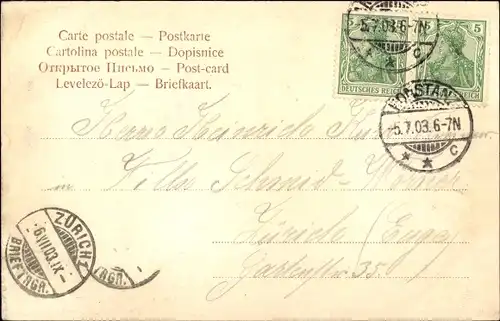 Carte postale — Postkarte
Cartolina postale — Dopisnice
Открытое Письмо — Post-card
Levelező-Lap — Briefkaart.
-5.7.03.6-7N
* * c
5
DEUTSCHES REICH
5
REICH
KONSTAN
-5.7.03.6-7N
* * c
Herrn Heinrich
Villa Schmid-
Zürich (Enge)
Gartenstr 35.
ZÜRICH 1
-6.VII.03.IX-
BRIEFTRGR.
TRGR.